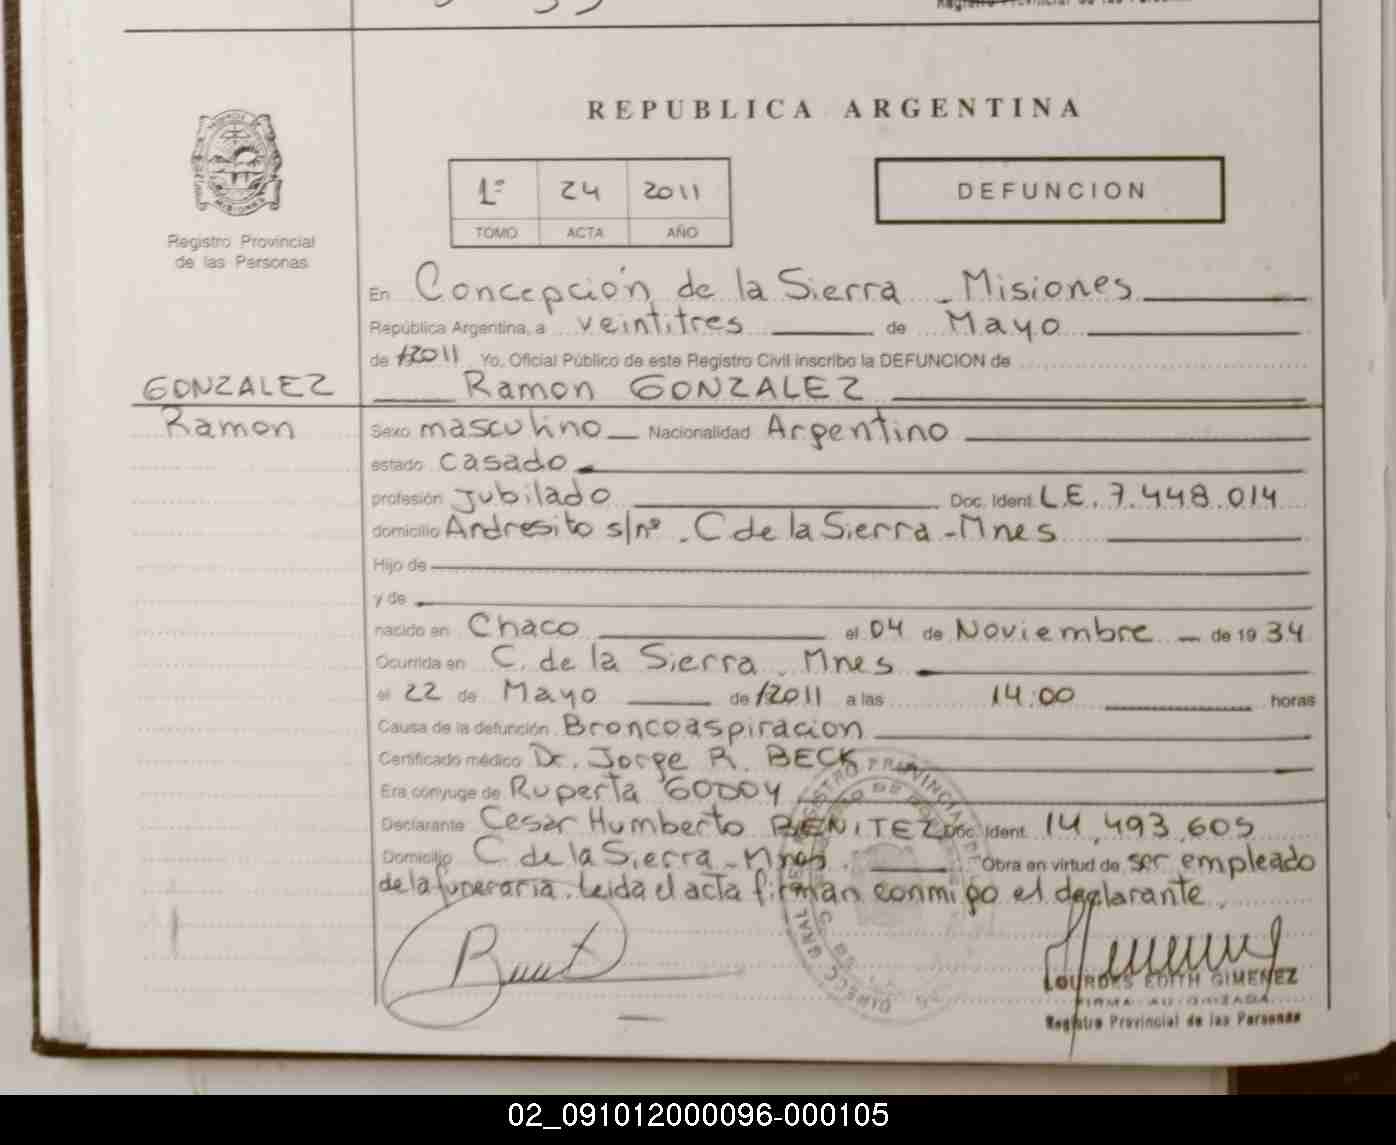 REPUBLICA ARGENTINA
1º 24 2011
TOMO ACTA AÑO
DEFUNCION
Registro Provincial
de las Personas
En Concepción de la Sierra - Misiones
República Argentina, a veintitres de Mayo
de 2011 Yo, Oficial Público de este Registro Civil inscribo la DEFUNCION de
GONZALEZ
Ramon
Ramon GONZALEZ
Sexo masculino Nacionalidad Argentino
estado casado
profesión Jubilado Doc. Ident. L.E. 7.448.014
domicilio Andresito s/nº. C de la Sierra - Mnes
Hijo de
y de
nacido en Chaco el 04 de Noviembre de 19 34
Ocurrida en C. de la Sierra - Mnes
el 22 de Mayo de 2011 a las 14:00 horas
Causa de la defunción Broncoaspiracion
Certificado médico Dr. Jorge R. BECK
Era cónyuge de Ruperta GODOY
Declarante Cesar Humberto BENITEZ Doc. Ident. 14.493.605
Domicilio C. de la Sierra - Mnes. Obra en virtud de ser empleado
de la funeraria. Leida el acta firman conmigo el declarante.
LOURDES EDITH GIMENEZ
FIRMA AUTORIZADA
Registro Provincial de las Personas
02_091012000096-000105